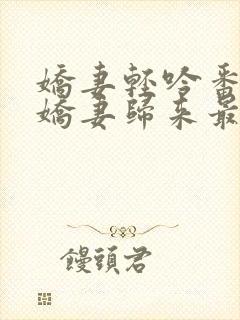 嬌妻輕吟番
嬌妻歸來最
饅頭君